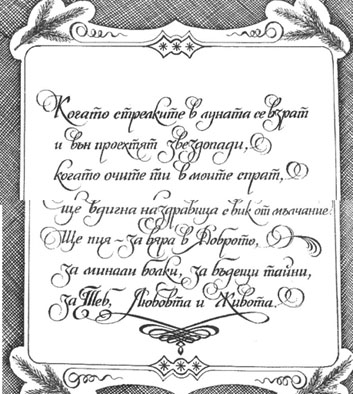 Когато стрелките в луната се взрат
и вън проехтят звездопади,
когато очите ти в моите спрат,
ще вдигна наздравица с вик от мълчание:
Ще пия – за вяра в Доброто,
за минали болки, за бъдещи тайни,
за Теб, Любовта и Живота.